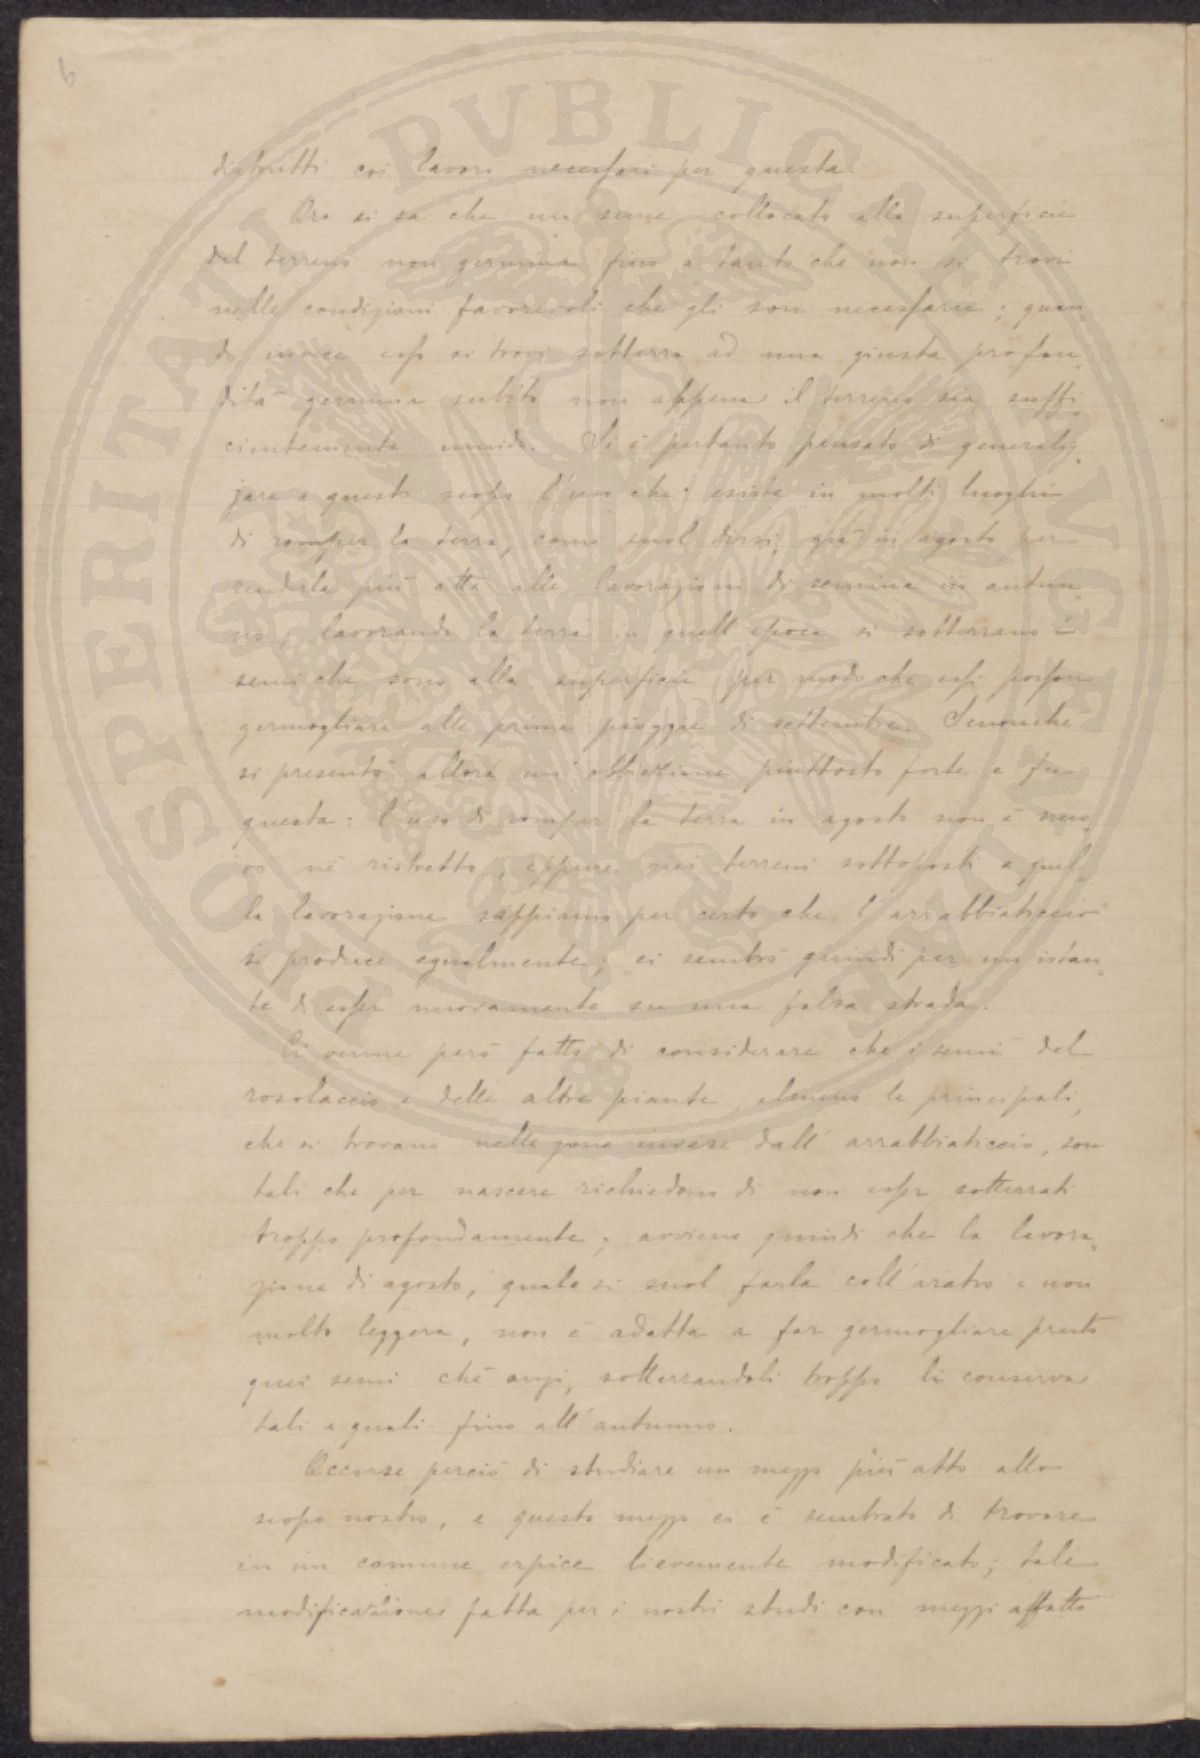 6
distrutti coi lavori necessari per questa.
Ora si sa che un seme collocato alla superficie
del terreno non germina fino a tanto che non si trovi
nelle condizioni favorevoli che gli son necessarie; quan-
do invece esso si trovi sotterra ad una giusta profon-
dità germina subito non appena il terreno sia suffi-
cientemente umido. Si è pertanto pensato di generaliz-
zare a questo scopo l'uso che esiste in molti luoghi
di romper la terra, come suol dirsi, già in agosto per
renderla più atta alle lavorazioni di semina in autun-
no; lavorando la terra in quell'epoca si sotterrano i
semi che sono alla superficie per modo che essi posson
germogliare alle prime pioggie di settembre. Senonché
si presentò allora un'obbiezione piuttosto forte e fu
questa: l'uso di romper la terra in agosto non è nuo-
vo né ristretto, eppure nei terreni sottoposti a quel-
la lavorazione sappiamo per certo che l'arrabbiaticcio
si produce egualmente; ci sembrò quindi per un istan-
te di esser nuovamente su una falsa strada.
Ci venne però fatto di considerare che i semi del
rosolaccio e delle altre piante, almeno le principali,
che si trovano nelle zone invase dall'arrabbiaticcio, son
tali che per nascere richiedono di non esser sotterrati
troppo profondamente; avviene quindi che la lavora-
zione di agosto, quale si suol farla coll'aratro e non
molto leggera, non è adatta a far germogliare presto
quei semi ché anzi, sotterrandoli troppo li conserva
tali e quali fino all'autunno.
Occorse perciò di studiare un mezzo più atto allo
scopo nostro, e questo mezzo ci è sembrato di trovare
in un comune erpice lievemente modificato; tale
modificazione fatta per i nostri studi con mezzi affatto
PROSPERITATI PVBLICAE AVGENDAE